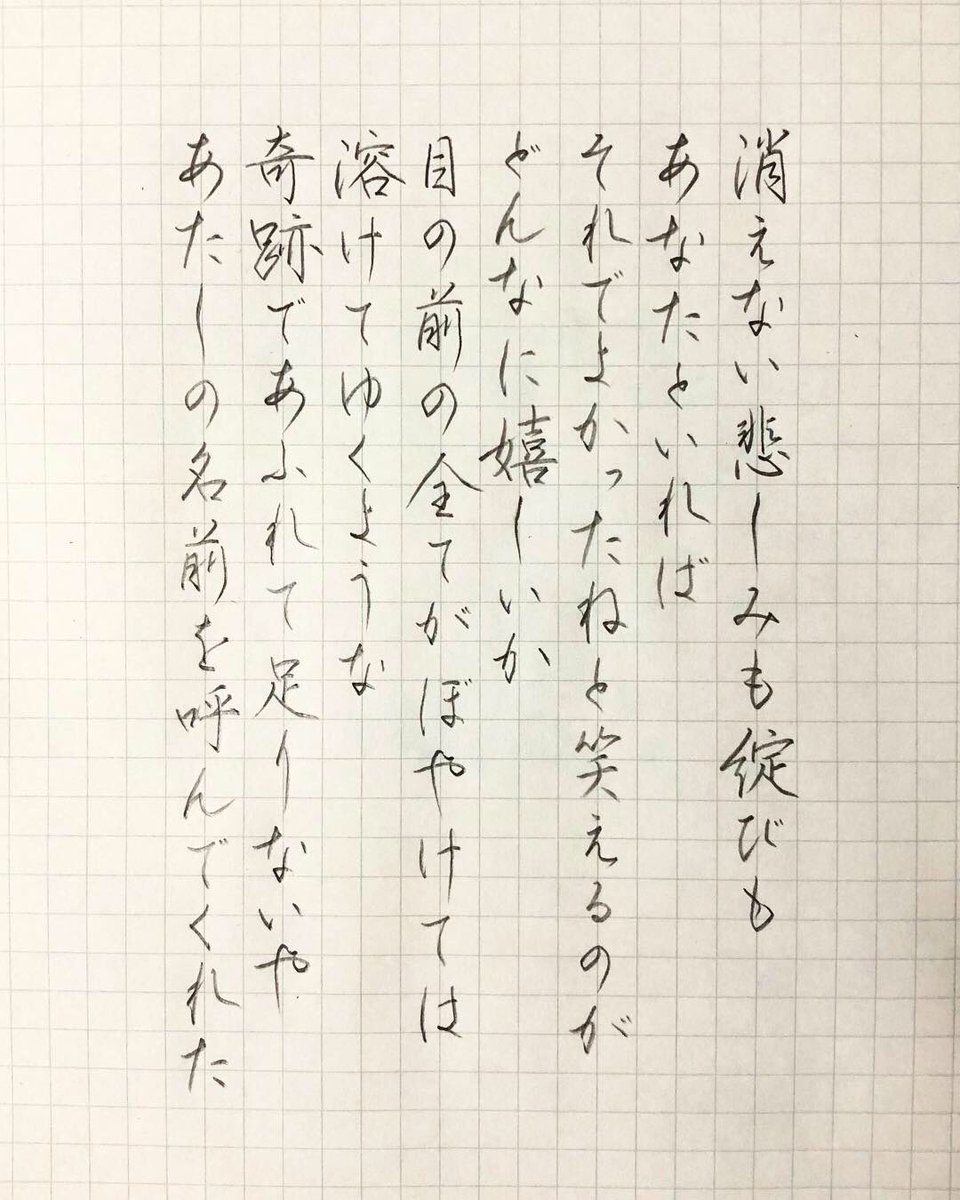 消えない悲しみも綻びも
あなたといれば
それでよかったねと笑えるのが
どんなに嬉しいか
目の前の全てがぼやけては
溶けてゆくような
奇跡であふれて足りないや
あたしの名前を呼んでくれた